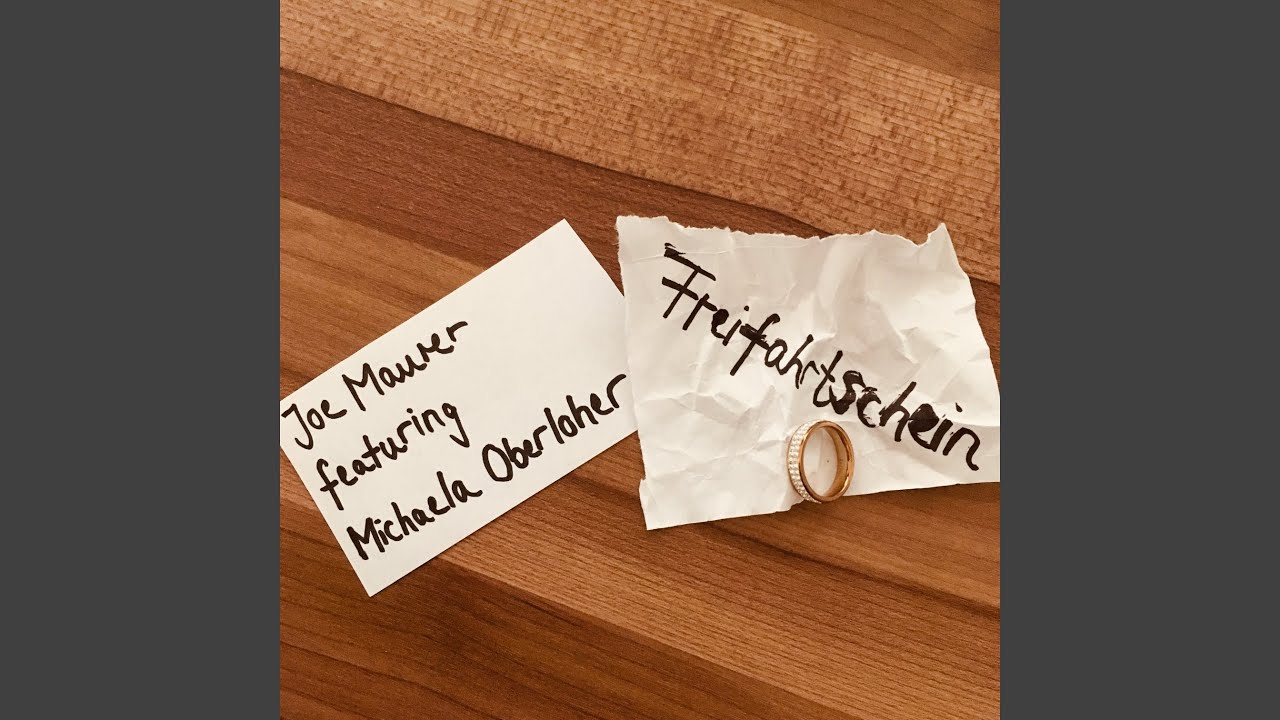 Joe Maurer
featuring
Michaela Oberloher
Freifahrtschein